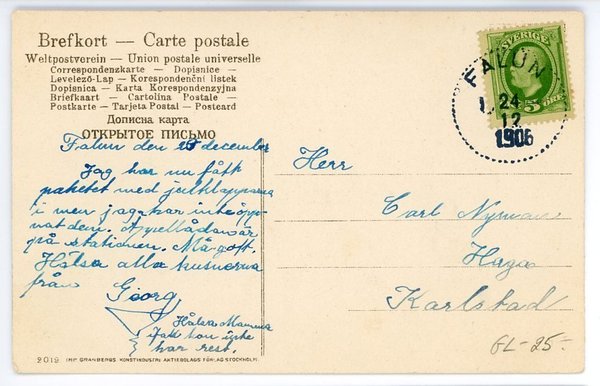 Brefkort — Carte postale
Weltpostverein — Union postale universelle
Correspondenzkarte — Dopisnice —
Levelező-Lap — Korespondenční listek
Dopisnica — Karta Korespondenzyjna
Briefkaart — Cartolina Postale —
Postkarte — Tarjeta Postal — Postcard
Дописна карта
ОТКРЫТОЕ ПИСЬМО
Falun den 23 december
Jag har nu fått
paketet med julklapparna
i men jag har inte öpp-
nat dem. är
på stationen. Må gott.
Hälsa alla kusinerna
från
Georg
Hälsa Mamma
hon
har rest.
2019 IMP. GRANBERGS KONSTINDUSTRI AKTIEBOLAGS FÖRLAG STOCKHOLM
SVERIGE
5 ÖRE
FALUN
24
12
1906
Herr
Carl Nyman
Haga
Karlstad
GL-25-